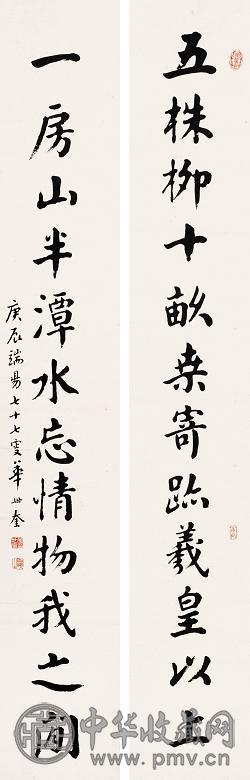 五株柳十畝桒寄跡羲皇以上
一房山半潭水忘情物我之間
庚辰端昜七十七叟華世奎
中华收藏网
www.pmv.cn